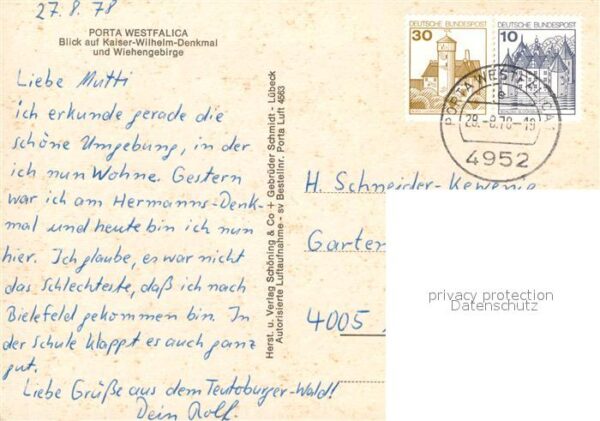 27.8.78
PORTA WESTFALICA
Blick auf Kaiser-Wilhelm-Denkmal
und Wiehengebirge
Liebe Mutti
ich erkunde gerade die
schöne Umgebung, in der
ich nun Wohne. Gestern
war ich am Hermanns-Denk-
mal und heute bin ich nun
hier. Ich glaube, es war nicht
das schlechteste, daß ich nach
Bielefeld gekommen bin. In
der Schule klappt es auch ganz
gut.
Liebe Grüße aus dem Teutoburger-Wald!
Dein Rolf.
Herst. u. Verlag Schöning & Co + Gebrüder Schmidt - Lübeck
Autorisierte Luftaufnahme - sv Bestellnr. Porta Luft 4563
30 DEUTSCHE BUNDESPOST
10 DEUTSCHE BUNDESPOST
PORTA WESTFALICA 1
28.-8.78-19
4952
H. Schneider-
Garten
4005
privacy protection
Datenschutz